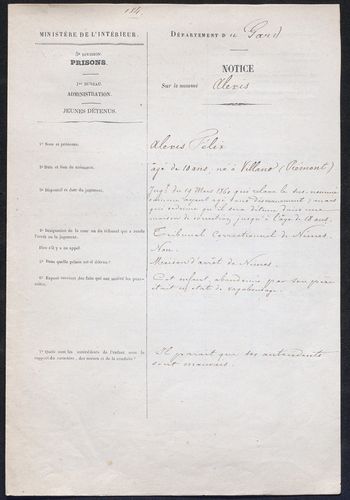 184.
MINISTÈRE DE L'INTÉRIEUR.
5e DIVISION.
PRISONS.
1er BUREAU.
ADMINISTRATION.
JEUNES DÉTENUS.
DÉPARTEMENT D u Gard
NOTICE
Sur le nommé Alexis
1° Nom et prénoms.
Alexis Felix
2° Date et lieu de naissance.
âgé de 10 ans, né à Villano (Piémont)
3° Dispositif et date du jugement.
Jugt du 19 Mars 1861 qui relaxe le sus-nommé
comme ayant agi sans discernement; mais
qui ordonne qu'il sera détenu dans une
maison de correction jusqu'à l'âge de 18 ans.
4° Désignation de la cour ou du tribunal qui a rendu
l'arrêt ou le jugement.
Tribunal Correctionnel de Nimes.
S'en est-il y eu appel.
Non.
5° Dans quelle prison est-il détenu?
Maison d'arrêt de Nimes.
6° Exposé succinct des faits qui ont motivé les poursuites.
Cet enfant, abandonné par son père
était en état de vagabondage.
7° Quels sont les antécédents de l'enfant sous le
rapport du caractère, des mœurs et de la conduite?
Il parait que ses antécédents
sont mauvais.